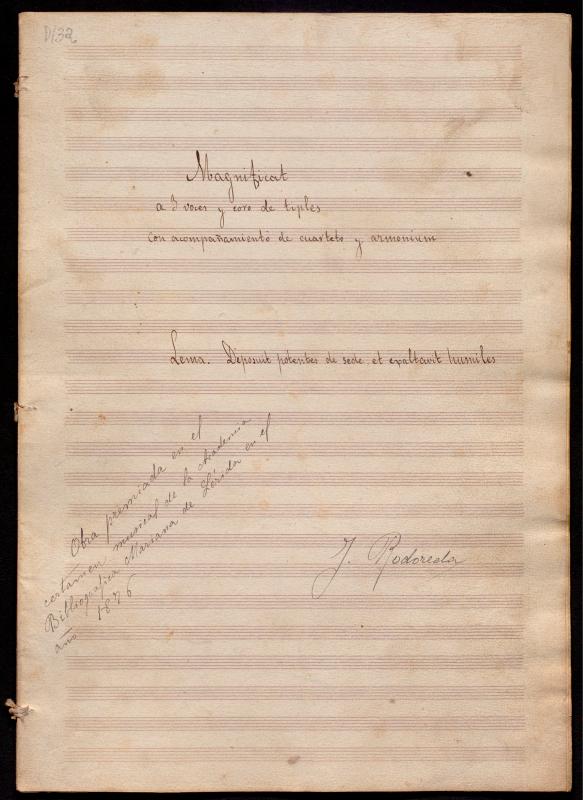 D/32
Magnificat
a 3 voces y coro de tiples
con acompañamiento de cuarteto y armonium
Lema. Deposuit potentes de sede et exaltavit humiles
Obra premiada en el
certámen musical de la Academia
Bibliografica Mariana de Lérida en el
año 1876
J. Rodoreda